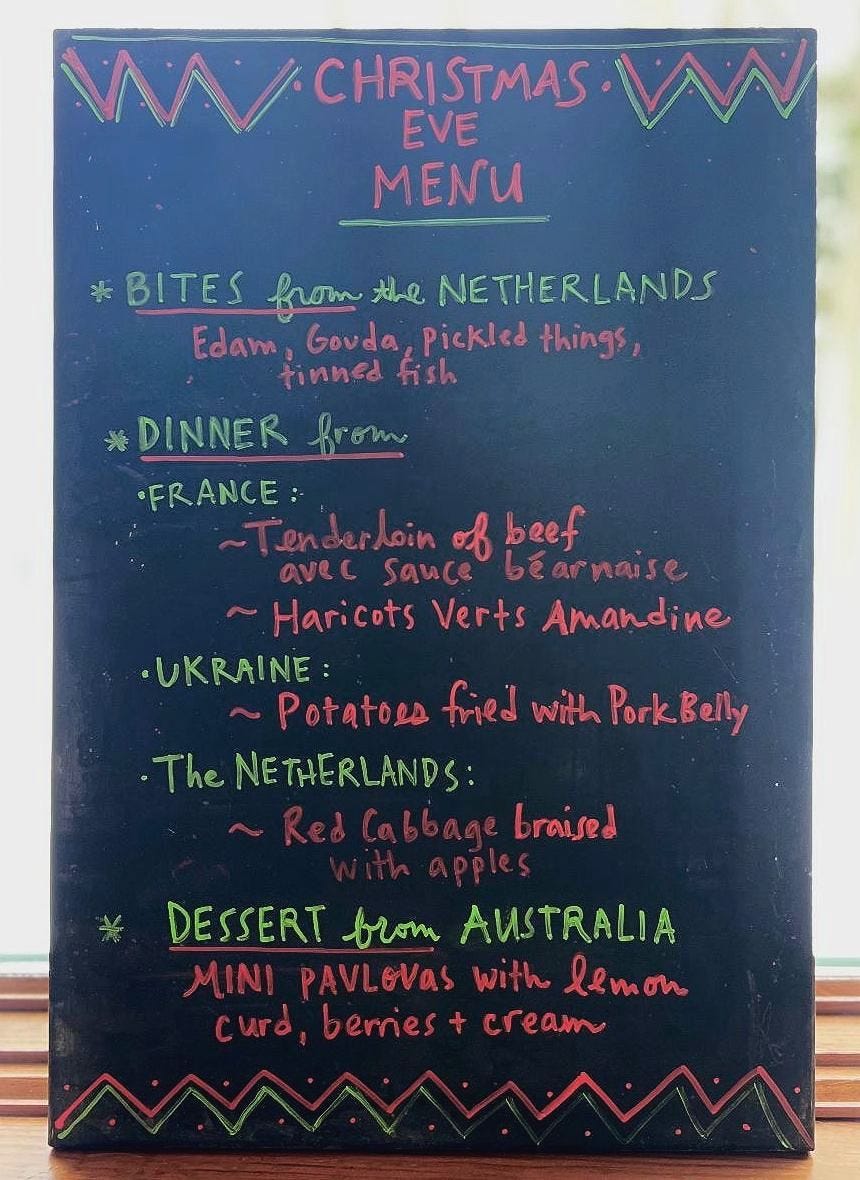 CHRISTMAS
EVE
MENU
* BITES from the NETHERLANDS
Edam, Gouda, pickled things,
tinned fish
* DINNER from
• FRANCE:
~ Tenderloin of beef
avec sauce béarnaise
~ Haricots Verts Amandine
• UKRAINE:
~ Potatoes fried with Pork Belly
• The NETHERLANDS:
~ Red Cabbage braised
with apples
* DESSERT from AUSTRALIA
MINI PAVLOVAS with lemon
curd, berries + cream